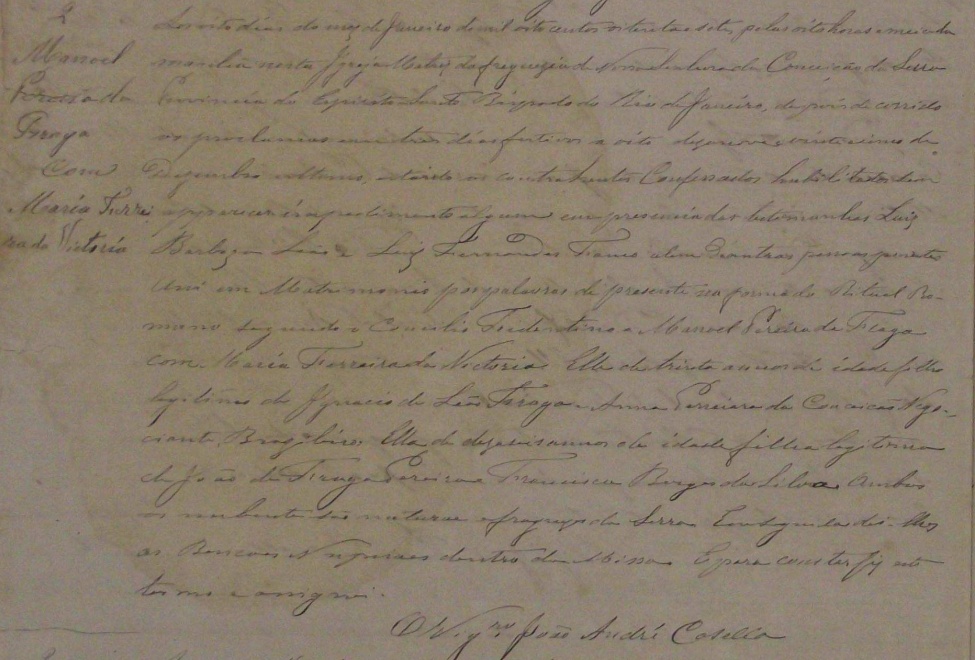 2
Manoel
Pereira da
Fraga
Com
Maria Ferrei
ra da Victoria
Aos oito dias do mez de Janeiro de mil oito centos e setenta e sete, pelas oito horas e meia da
manhã nesta Igreja Matriz da freguezia de Nossa Senhora da Conceição da Serra
Provincia do Espirito Santo Bispado do Rio de Janeiro, depois de corrido
os proclamas em tres dias festivos a oito dezenove e vinte e cinco de
Dezembro ultimo, estando os contrahentes Confessados habilitados sem
apparecer impedimento algum em presença das testemunhas Luiz
Barboza Leão e Luiz Fernandes Franco alem de outras pessoas
Uni em Matrimonio por palavras de presente na forma do Ritual Ro-
mano segundo o Concilio Tridentino a Manoel Pereira de Fraga
com Maria Ferreira da Victoria Elle de trinta annos de idade filho
legitimo de Ignacio de Leão Fraga e Anna Ferreira da Conceição Nego-
ciante Brazileiro Ella de dezeseis annos de idade filha legitima
de João de Fraga Pereira e Francisca Borges da Silva Ambos
os nubentes são naturaes e freguezes da Serra Em seguida dei-lhes
as Bençoes Nupciaes dentro da Missa E para constar fiz este
termo e assignei.
O Vig.ro João André Caselia